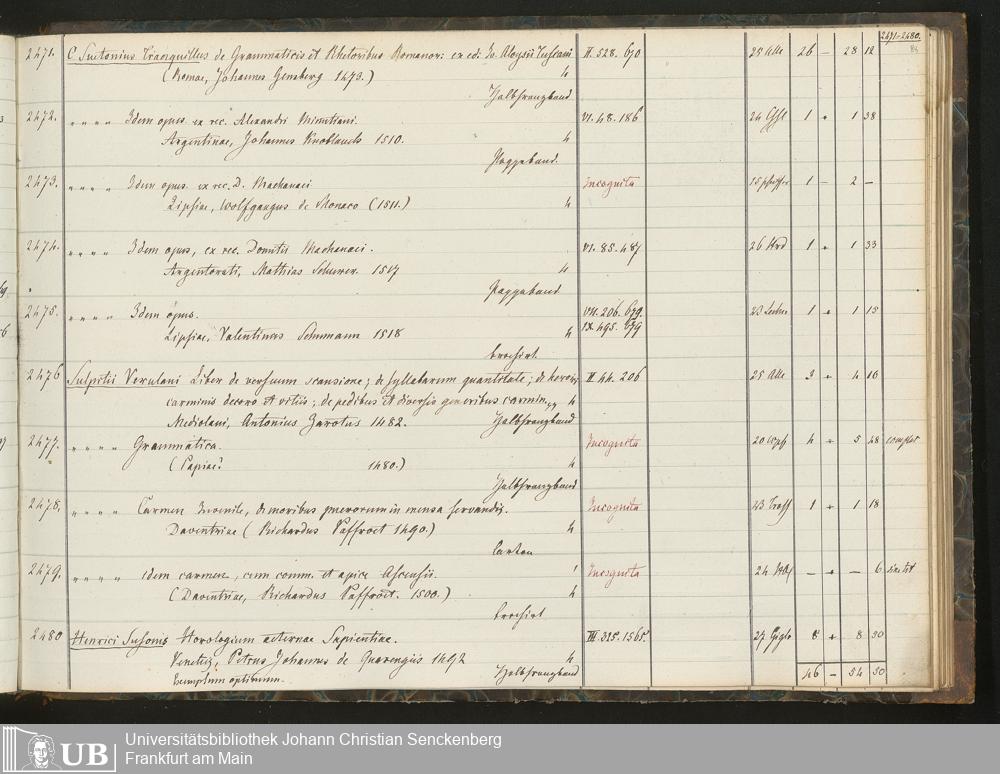 2471-2480.
84
2471. C. Suetonius Tranquillus de Grammaticis et Rhetoribus Romanor: ex ed: Jo. Aloysii Tuscani II. 528. 670 25 26 – 28 12
(Romae, Johannes Gensberg 1473.) 4
Halbfranzband
2472. " " " " Idem opus. ex rec. Alexandri Minutiani. VI. 48. 186 24 1 + 1 38
Argentinae, Johannes Knoblauch 1510. 4
Pappband.
2473. " " " " Idem opus. ex rec. D. Machanaei Incognita 15 1 – 2 –
Lipsiae, Wolfgangus de Monaco (1511.) 4
2474. " " " " Idem opus, ex rec. Domitii Machanaei. VI. 85. 487 26 1 + 1 33
Argentorati, Mathias Schurer. 1517 4
Pappband
2475. " " " " Idem opus. VII. 206. 679. 23 1 + 1 15
Lipsiae, Valentinus Schumann 1518 4 IX 495. 679
brochirt.
2476 Sulpitii Verulani Liber de versuum scansione; de syllabarum quantitate; de heroici II. 44. 206 25 3 + 4 16
carminis decoro et vitiis; de pedibus et diversis generibus carmin 4
Mediolani, Antonius Zarotus 1482. Halbfranzband
2477. " " " " Grammatica. Incognita 20 4 + 5 48 complet
(Papiae? 1480.) 4
Halbfranzband
2478. " " " " Carmen Juvenile, de moribus puerorum in mensa servandis. Incognita 23 1 + 1 18
Daventriae (Richardus Paffroet 1490.) 4
Carton
2479. " " " " idem carmen, cum comm. et apice Ascensii. Incognita 24 – + – 6
(Daventriae, Richardus Paffroet. 1500.) 4
brochirt
2480 Henrici Susonis Horologium aeternae Sapientiae. III. 315. 1565 27 8 + 8 30
Venetiis, Petrus Johannes de Quarengiis 1492 4
Exemplum optimum. Halbfranzband 46 – 54 50
UB Universitätsbibliothek Johann Christian Senckenberg
Frankfurt am Main